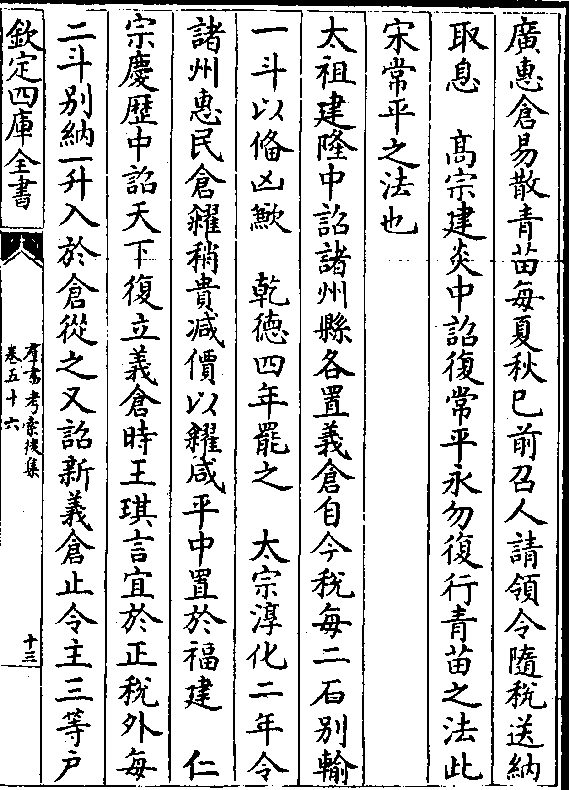 廣惠倉易散青苗每夏秋已前召人請領令隨税送納
取息　髙宗建炎中詔復常平永勿復行青苗之法此
宋常平之法也
太祖建隆中詔諸州縣各置義倉自今税每二石别輸
一斗以俻凶歉　乾徳四年罷之　太宗淳化二年令
諸州惠民倉糴稍貴减價以糴咸平中置於福建　仁
宗慶歴中詔天下復立義倉時王琪言宜於正税外每
二斗别納一升入於倉從之又詔新義倉止令主三等户
欽定四庫全書
羣書考索後集
卷五十六
十三